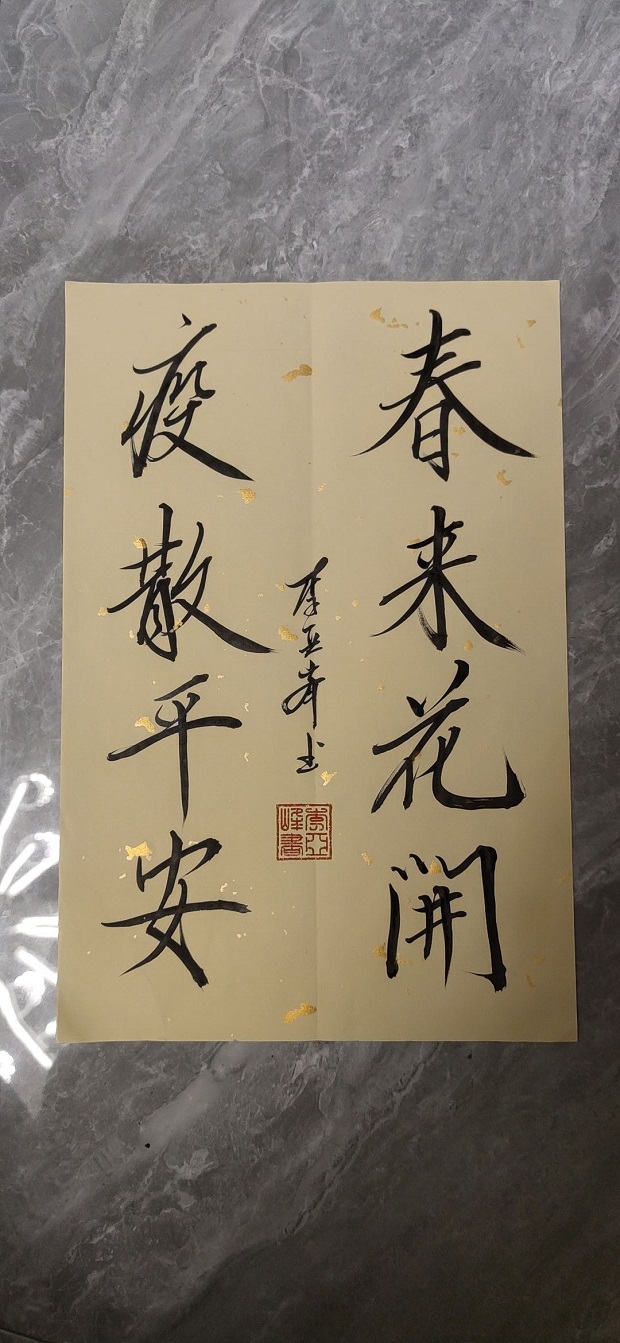 春来花開
疫散平安
李亚峰书
李亚
峰書